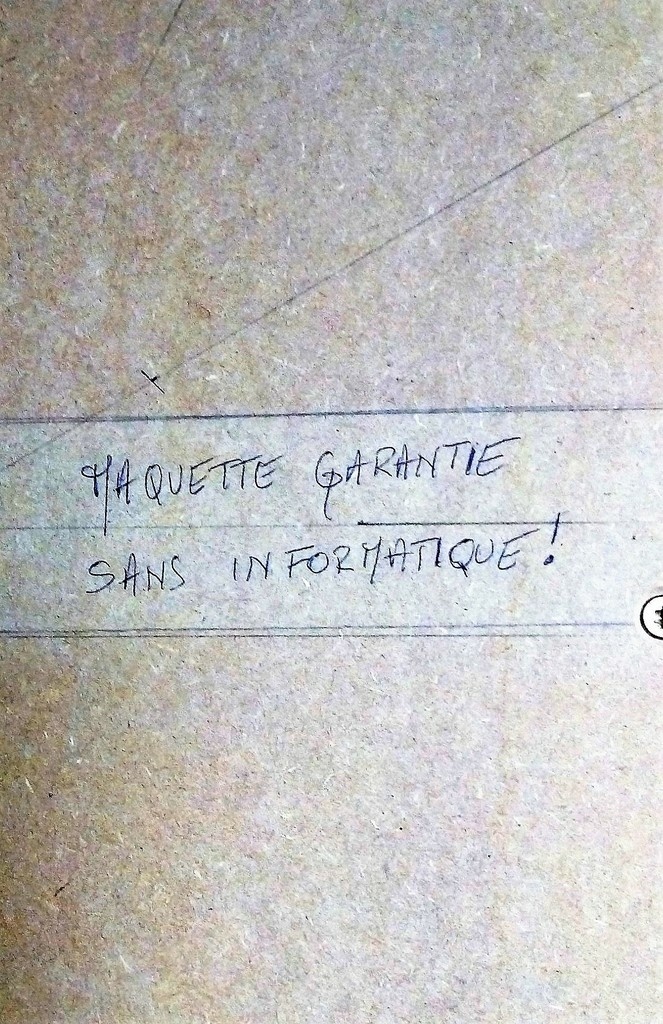 MAQUETTE GARANTIE
SANS INFORMATIQUE !